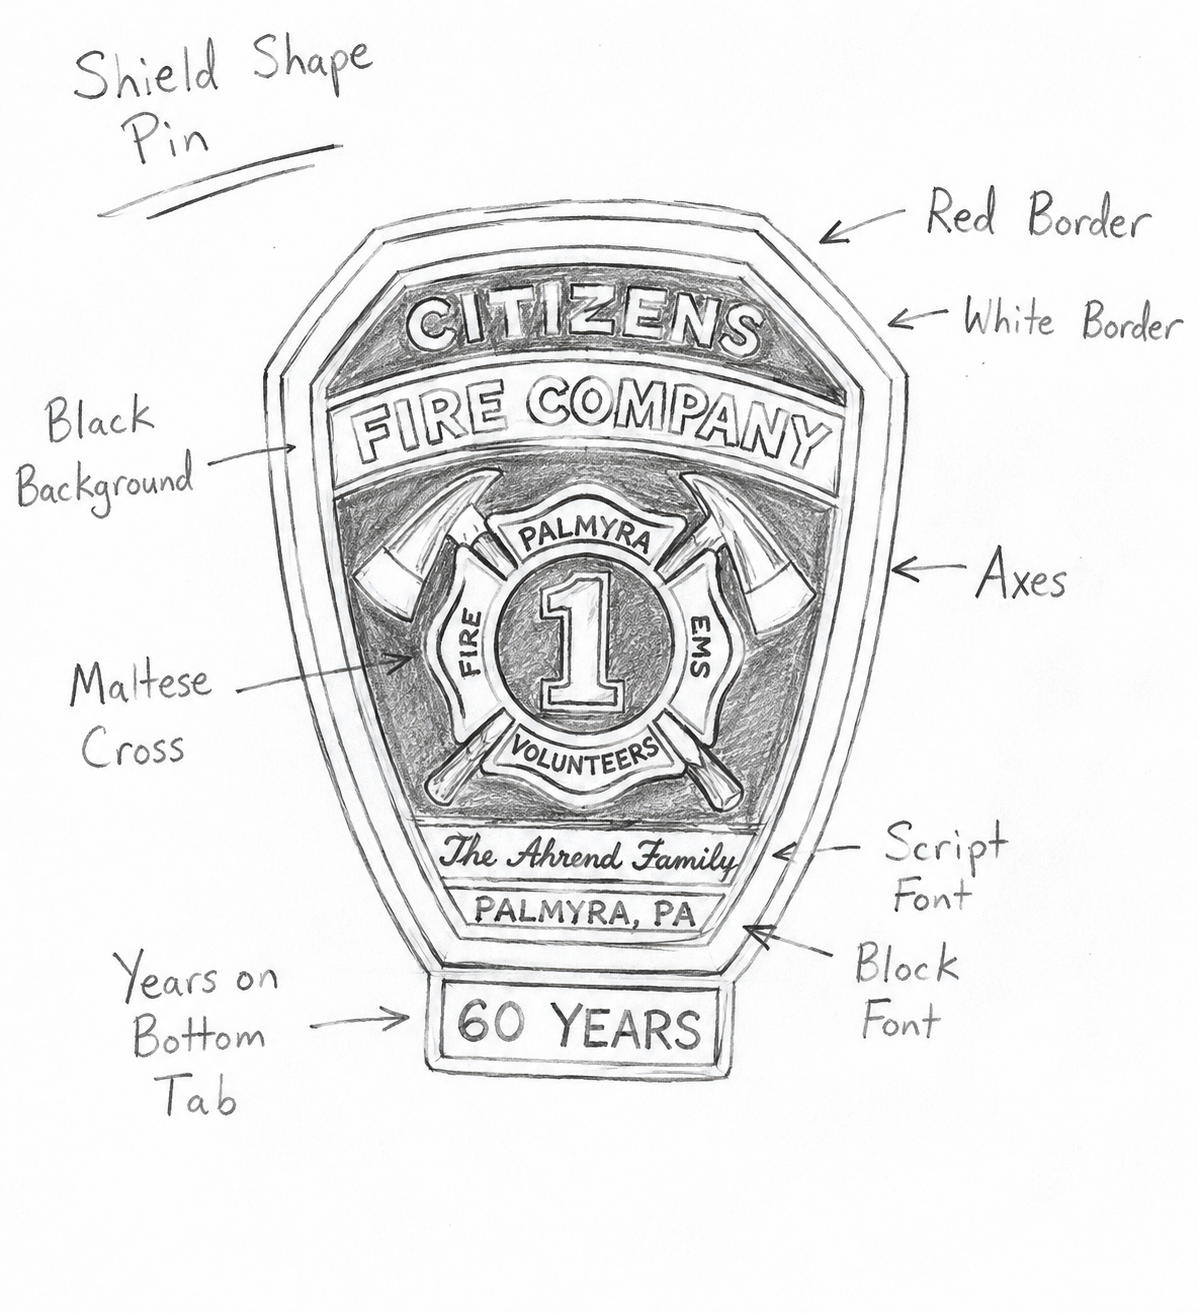 Shield Shape
Pin
Red Border
White Border
CITIZENS
FIRE COMPANY
Black
Background
PALMYRA
Axes
FIRE
1
EMS
Maltese
Cross
VOLUNTEERS
The Ahrend Family
Script
Font
PALMYRA, PA
Block
Font
Years on
Bottom
Tab
60 YEARS